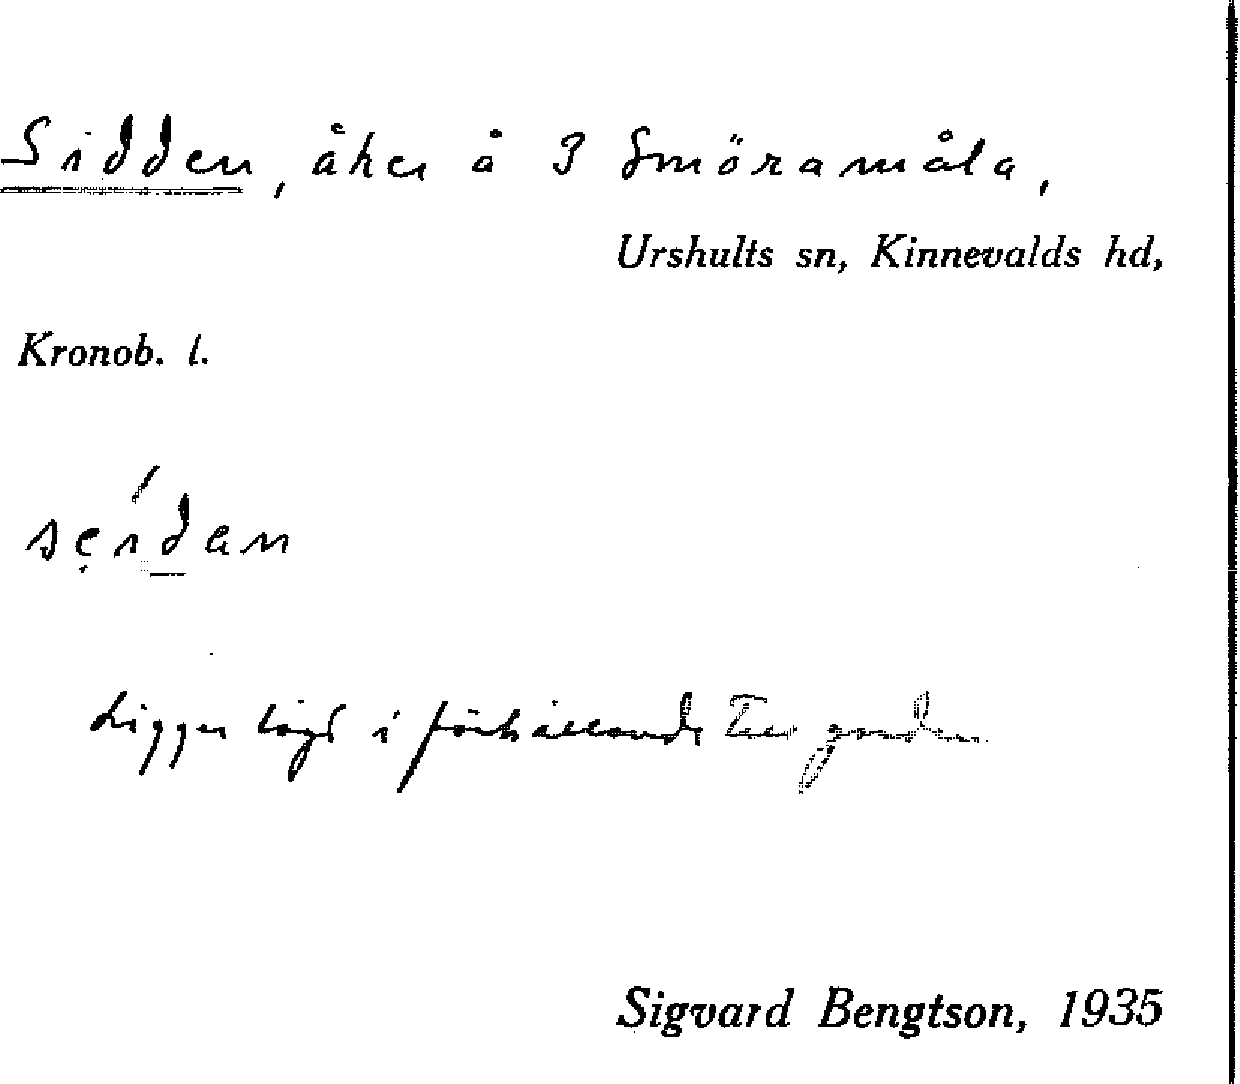 Sidden, åker å 3 Smöramåla,
Urshults sn, Kinnevalds hd,
Kronob. l.
Ligger lågt i förhållande till gården
Sigvard Bengtson, 1935